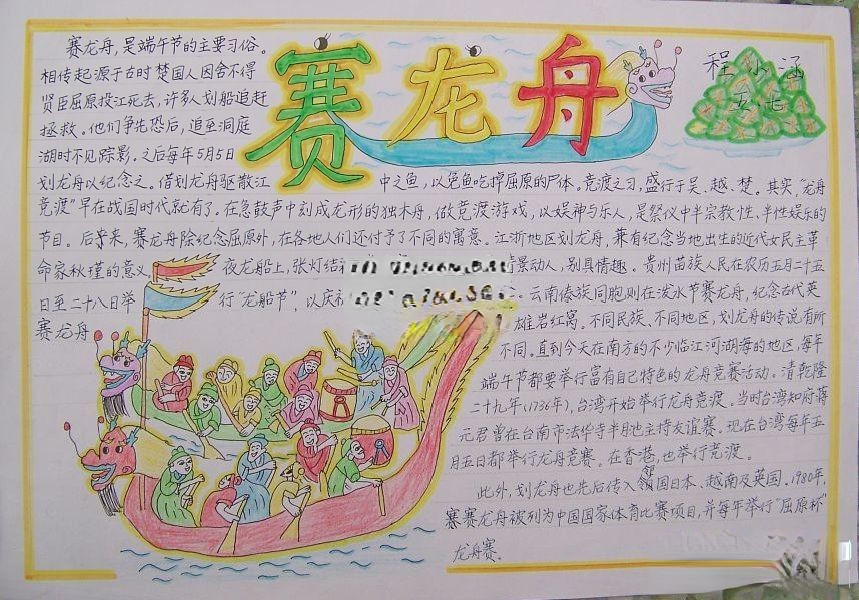 赛龙舟
程小涵
五七
赛龙舟,是端午节的主要习俗。
相传起源于古时楚国人因舍不得
贤臣屈原投江死去,许多人划船追赶
拯救。他们争先恐后,追至洞庭
湖时不见踪影。之后每年5月5日
划龙舟以纪念之。借划龙舟驱散江中之鱼,以免鱼吃掉屈原的尸体。竞渡之习,盛行于吴、越、楚。其实,“龙舟
竞渡”早在战国时代就有了。在急鼓声中刻成龙形的独木舟,做竞渡游戏,以娱神与乐人,是祭仪中半宗教性、半性娱乐的
节目。后来,赛龙舟除纪念屈原外,在各地人们还付予了不同的寓意。江浙地区划龙舟,兼有纪念当地出生的近代女民主革
命家秋瑾的意义 夜龙船上,张灯结 景动人,别具情趣。贵州苗族人民在农历五月二十五
日至二十八日举行“龙船节”,以庆 。云南傣族同胞则在泼水节赛龙舟,纪念古代英
赛龙舟 雄岩红窝。不同民族、不同地区,划龙舟的传说有所
不同。直到今天在南方的不少临江河湖海的地区,每年
端午节都要举行富有自己特色的龙舟竞赛活动。清乾隆
二十九年(1736年),台湾开始举行龙舟竞渡。当时台湾知府蒋
元君曾在台南市法华寺半月池主持友谊赛。现在台湾每年五
月五日都举行龙舟竞赛。在香港,也举行竞渡。
此外,划龙舟也先后传入邻国日本、越南及英国,1980年,
赛龙舟被列为中国国家体育比赛项目,并每年举行“屈原杯”
龙舟赛。